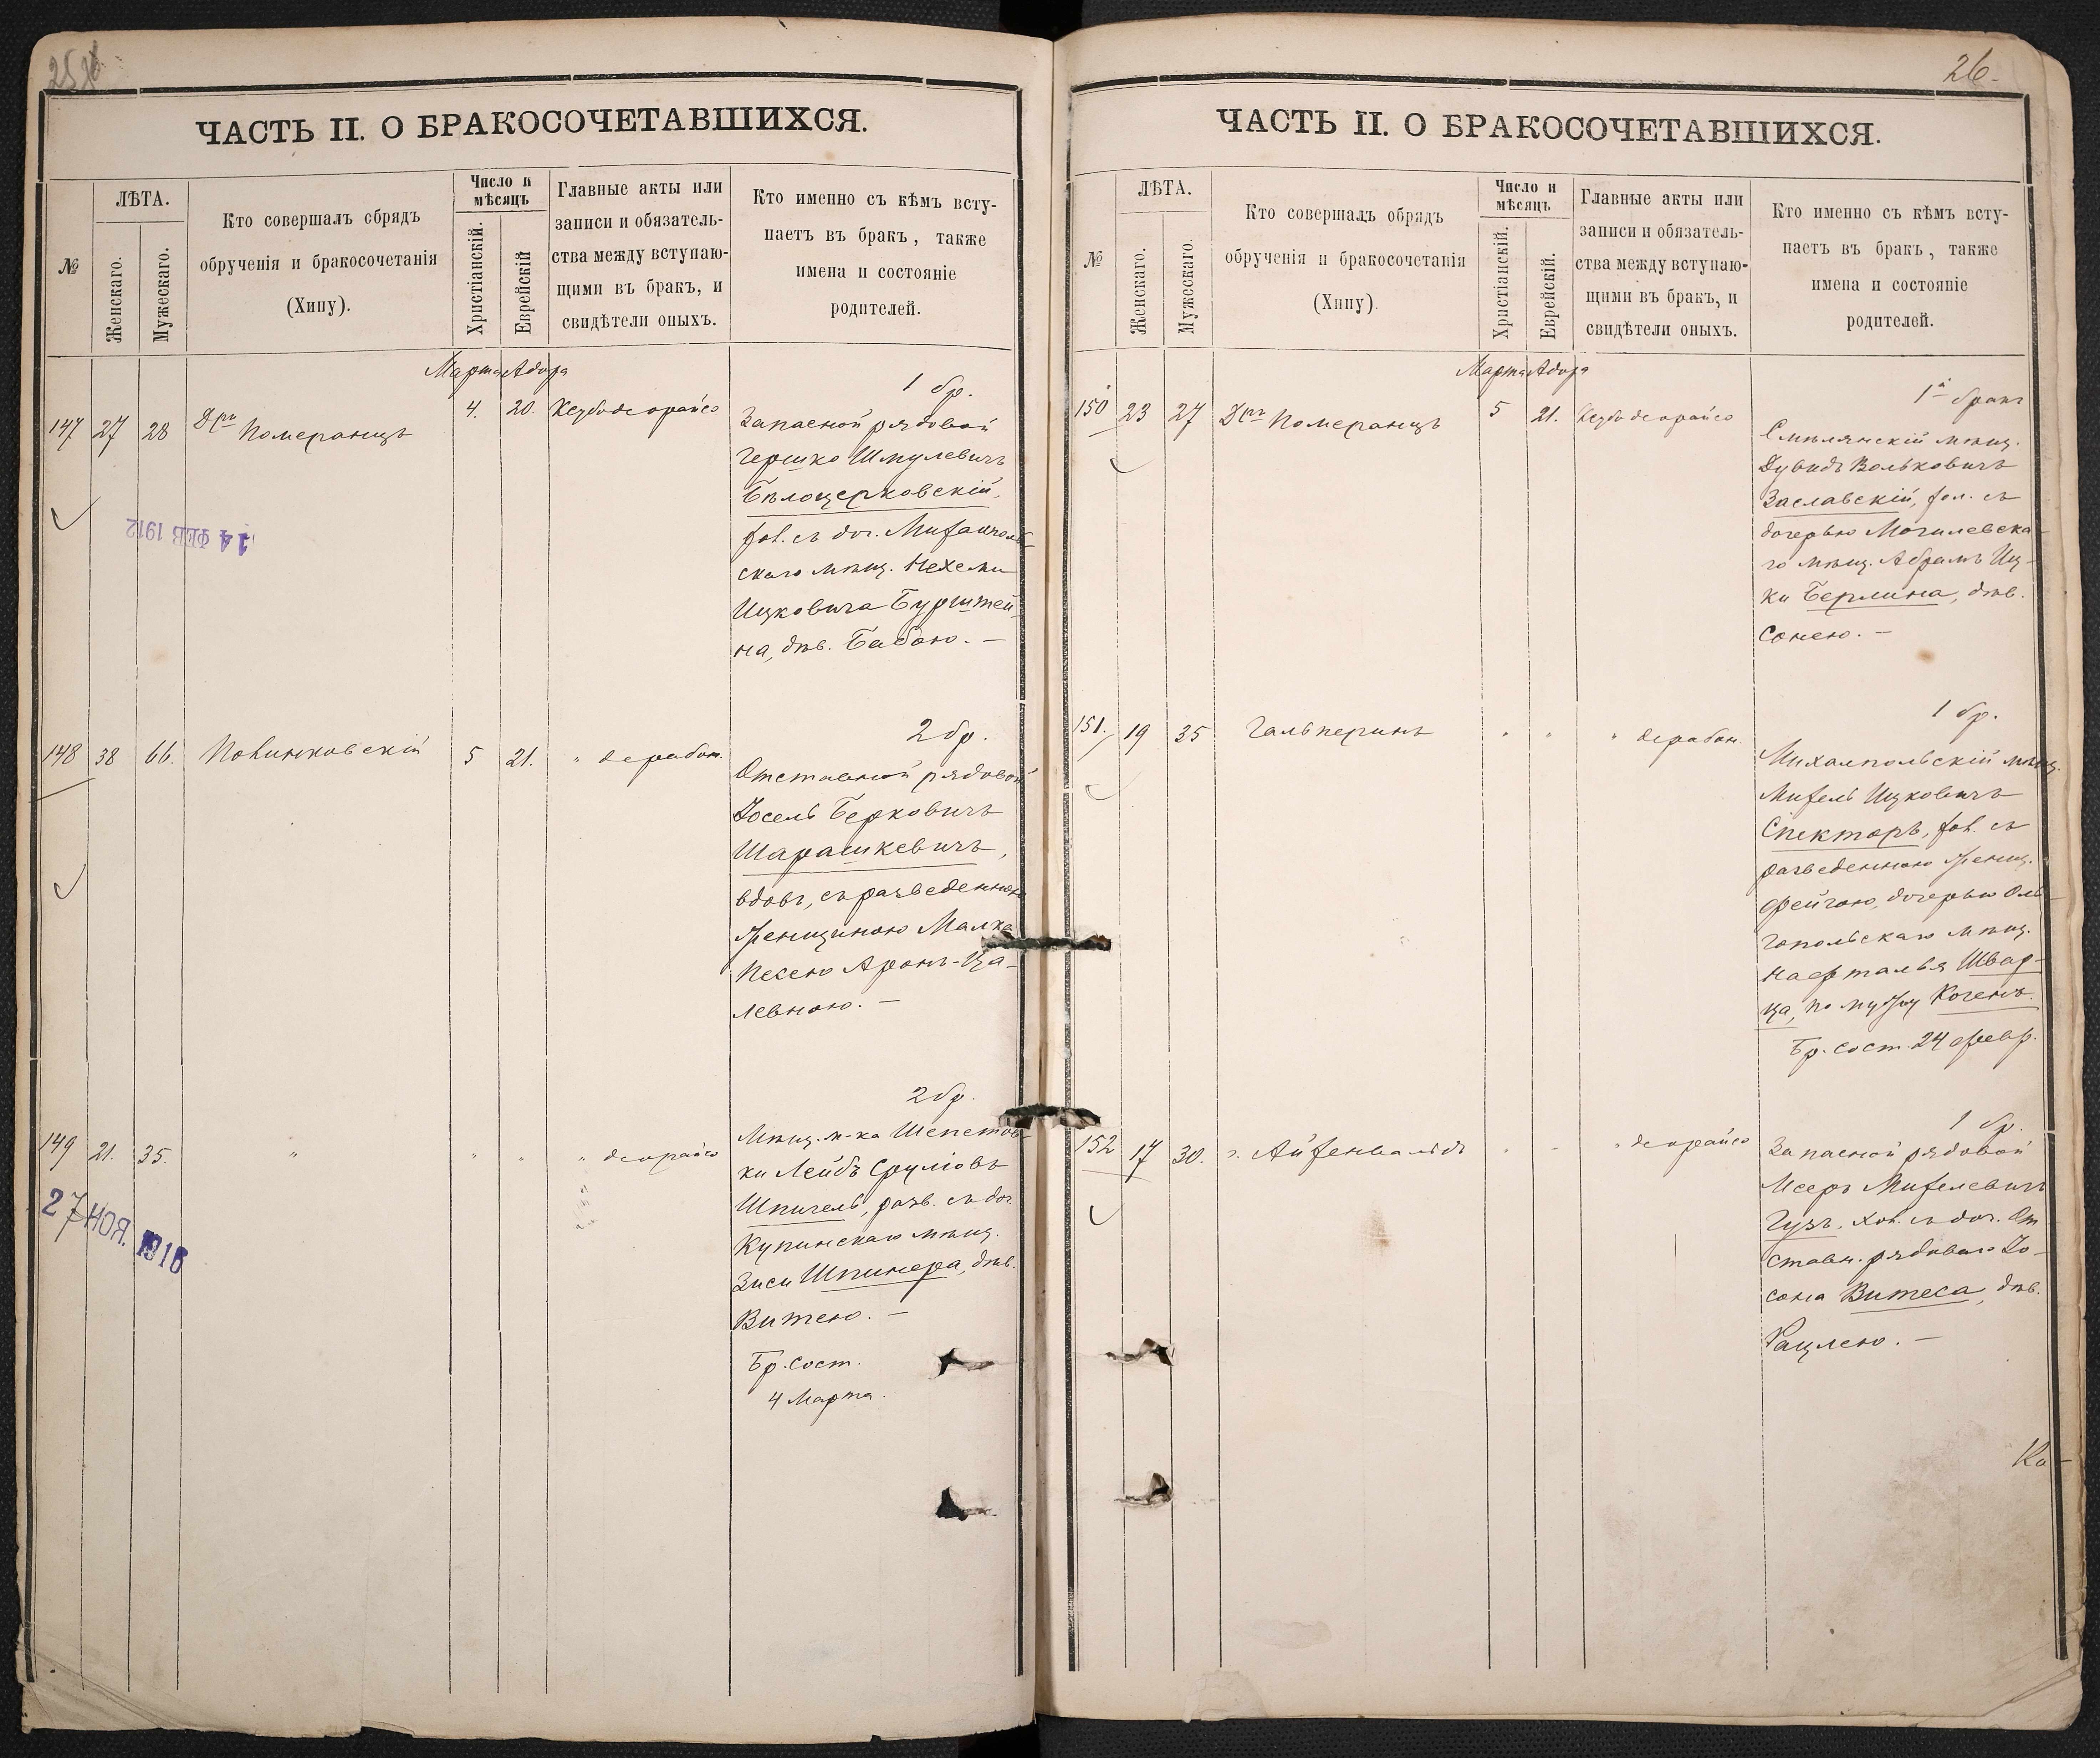 ЧАСТЬ II. О БРАКОСОЧЕТАВШИХСЯ.
№
ЛѢТА.
Женскаго.
Мужескаго.
Кто совершалъ обрядъ
обрученія и бракосочетанія
(Хипу).
Число и
мѣсяцъ
Христіанскій.
Еврейскій
Главные акты или
записи и обязатель-
ства между вступаю-
щими въ бракъ, и
свидѣтели оныхъ.
Кто именно съ кѣмъ всту-
паетъ въ бракъ, также
имена и состояніе
родителей.
Марта Адора
147 27 28 Померанцъ 4. 20.
1 бр.
Запасной рядовой
Гершко Шмулевичъ
Бѣлоцерковскій,
скаго мѣщ. Нехеми
Ицковича Бурштей-
на, дѣв. Бабою. —
14 ФЕВ 1912
148 38 66. 5 21. " дерабон.
2 бр.
Отставной рядовой
Іосель Берковичъ
Шарашкевичъ,
вдовъ, съ разведенною
женщиною Малка
Песею Аронъ-Ца-
левною. —
149 21. 35. " " " " деорайсо
2 бр.
Мѣщ. м-ка Шепетов-
ки Лейбъ Сруліовъ
Шпигель, разв. съ доч.
Купинскаго мѣщ.
Зиси Шпинера, дѣв.
Витею. —
Бр. сост.
4 Марта.
27 НОЯ. 1916
26.
ЧАСТЬ II. О БРАКОСОЧЕТАВШИХСЯ.
№
ЛѢТА.
Женскаго.
Мужескаго.
Кто совершалъ обрядъ
обрученія и бракосочетанія
(Хипу).
Число и
мѣсяцъ
Христіанскій.
Еврейскій.
Главные акты или
записи и обязатель-
ства между вступаю-
щими въ бракъ, и
свидѣтели оныхъ.
Кто именно съ кѣмъ всту-
паетъ въ бракъ, также
имена и состояніе
родителей.
Марта Адора
150 23 27 Померанцъ 5 21.
1й бракъ
Смѣлянскій мѣщ.
Дувидъ Вольковичъ
Заславскій, хол. съ
дочерью Могилевска-
го мѣщ. Абрамъ Иц-
ки Берлина, дѣв.
Сонею. —
151. 19 35 Гальперинъ " " " дерабон.
1 бр.
Михалпольскій мѣщ.
Ицковичъ
Спекторъ, хол. съ
разведенною женщ.
Фейгою, дочерью Оль-
гопольскаго мѣщ.
Нафталья Швар-
ца, по мужу Когенъ.
Бр. сост. 24 февр.
152 17 30. г. Айзенвальдъ " " " деорайсо
1 бр.
Запасной рядовой
Мееръ
Гузъ, хол. съ доч. От
ставн. рядоваго Іо-
сона Витеса, дѣв.
Рацлею. —
Ка-